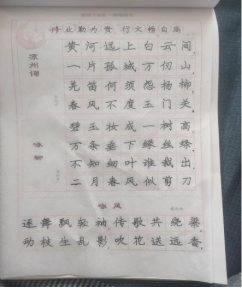 修业勤为贵 行文意自高
凉州词
黄河远上白云间,
一片孤城万仞山。
羌笛何须怨杨柳,
春风不度玉门关。
咏柳
碧玉妆成一树高,
万条垂下绿丝绦。
不知细叶谁裁出,
二月春风似剪刀
咏风
逐舞飘轻袖,传歌共绕梁
动枝生乱影,吹花送远香。